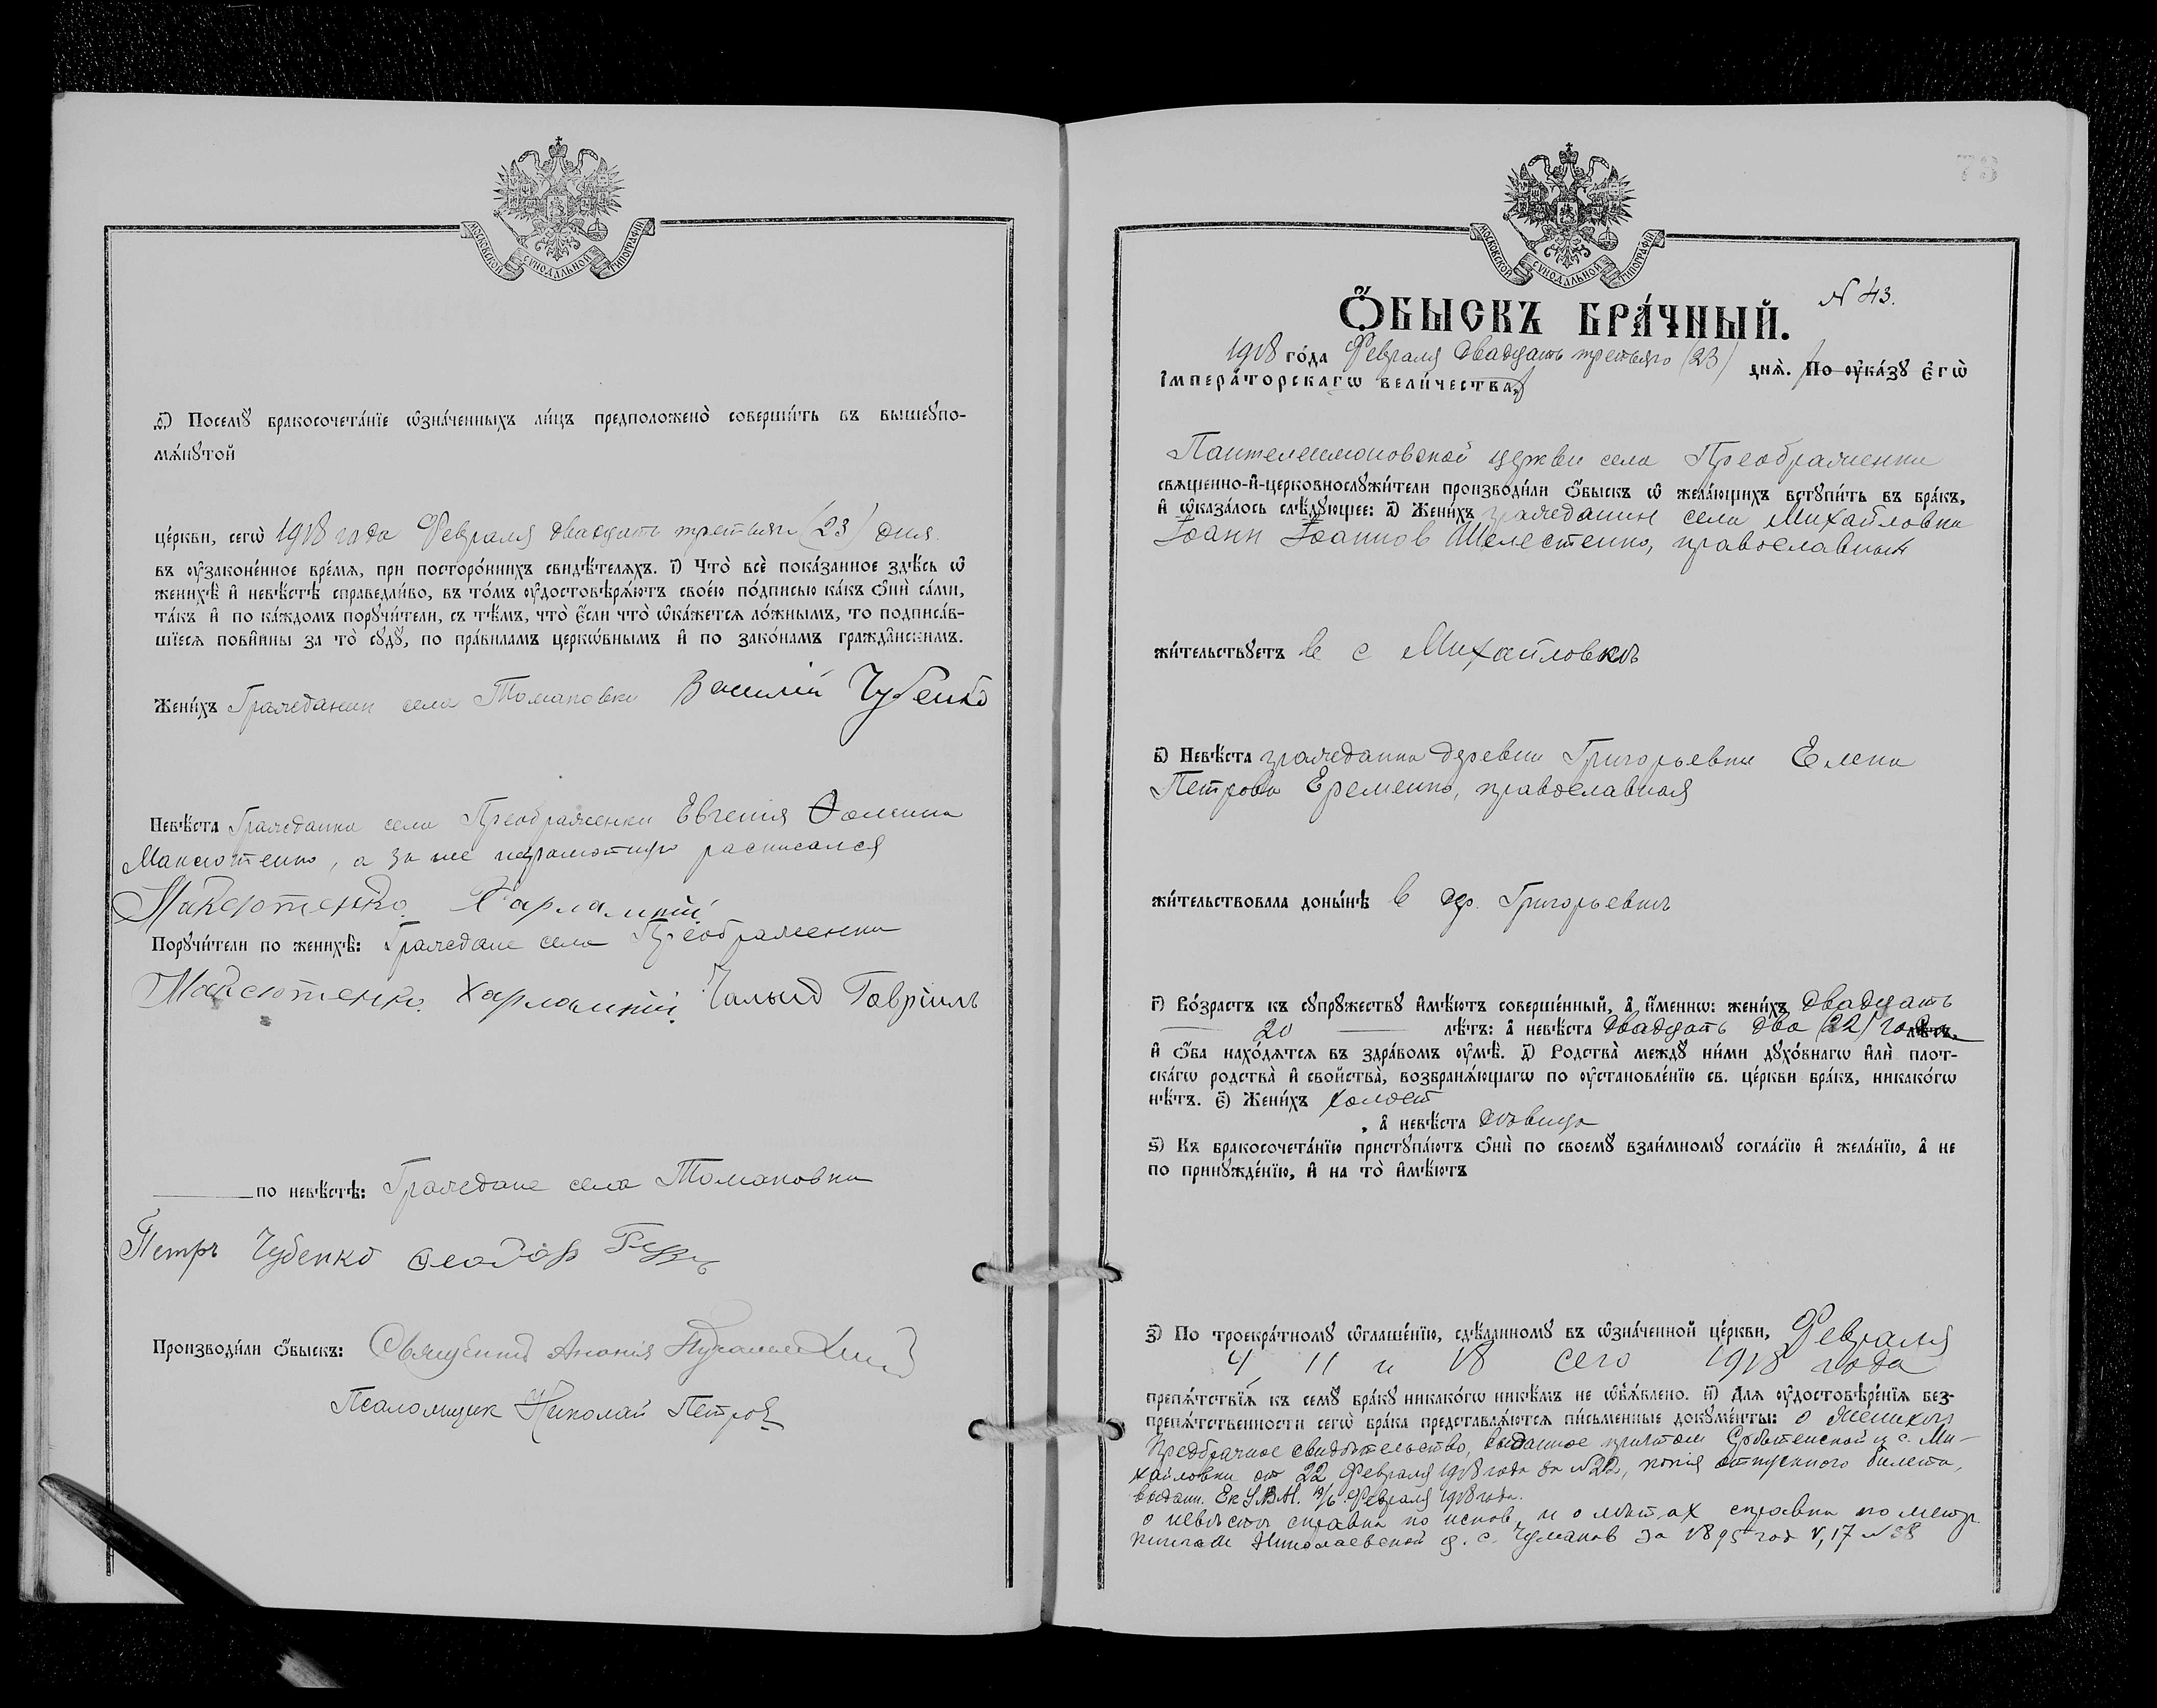 МОСКОВСКОЙ СѴНОДАЛЬНОЙ ТИПОГРАФІИ
д҃) Посемꙋ̀ бракосочета́нїе ѡ҆зна́ченныхъ ли́цъ предположено̀ соверши́ть въ вышеꙋпо-
мѧ́нꙋтой
це́ркви, сегѡ̀ 1918 года Февраля двадцать третьяго (23) дня
въ ᲂу҆зако́ненное вре́мѧ, при посторо́ннихъ свидѣ́телѧхъ. і҃) Что̀ всѐ пока́занное здѣ́сь ѡ҆
женихѣ̀ и҆ невѣ́стѣ справедли́во, въ то́мъ ᲂу҆достовѣрѧ́ютъ свое́ю по́дписью ка́къ ѻ҆нѝ са́ми,
та́къ и҆ по ка́ждомъ порꙋчи́тели, съ тѣ́мъ, что̀ є҆́сли что̀ ѡ҆ка́жетсѧ ло́жнымъ, то подписа́в-
шїесѧ пови́нны за то̀ сꙋдꙋ̀, по пра́виламъ церкѡ́внымъ и҆ по зако́намъ гражда́нскимъ.
Жени́хъ Гражданин села Томаковки Василій Чубенко
Невѣ́ста Гражданка села Преображенки Евгенія Фомина
Максютенко, а за нее неграмотную расписался
Максютенко Харлампій
Порꙋчи́тели по женихѣ̀: Граждане села Преображенки
Максютенко Харлампій. Чалый Гавріилъ
по невѣ́стѣ: Граждане села Томаковки
Петръ Чубенко Феодор
Производи́ли ѻ҆́быскъ: Священник Ананія
Псаломщик Николай Петров
73
МОСКОВСКОЙ СѴНОДАЛЬНОЙ ТИПОГРАФІИ
N 43.
Ѻ҆́БЫСКЪ БРА́ЧНЫЙ.
1918 го́да Февраля двадцать третьяго (23) днѧ̀. По ᲂу҆ка́зꙋ Є҆гѡ̀
І҆мпера́торскагѡ вели́чества,
Пантелеимоновской церкви села Преображенки
свѧще́нно-и҆-церковнослꙋжи́тели производи́ли ѻ҆́быскъ ѡ҆ жела́ющихъ встꙋпи́ть въ бра́къ,
и҆ ѡ҆каза́лось слѣ́дꙋющее: а҃) Жени́хъ гражданин села Михайловки
Іоанн Іоаннов Шелестенко, православный
жи́тельствꙋетъ в с Михайловкѣ
в҃) Невѣ́ста гражданка деревни Григорьевки Елена
Петрова Еременко, православная
жи́тельствовала доны́нѣ в дер. Григорьевкѣ
г҃) Во́зрастъ къ сꙋпрꙋ́жествꙋ и҆мѣ́ютъ соверше́нный, а҆ и҆́меннѡ: жени́хъ двадцать
20 лѣ́тъ: а҆ невѣ́ста двадцать два (22) года лѣ́тъ.
и҆ ѻ҆́ба нахо́дѧтсѧ въ здра́вомъ ᲂу҆мѣ̀. д҃) Родства̀ междꙋ̀ ни́ми дꙋхо́внагѡ и҆лѝ плот-
ска́гѡ родства̀ и҆ свойства̀, возбранѧ́ющагѡ по ᲂу҆становле́нїю св. це́ркви бра́къ, никако́гѡ
нѣ́тъ. є҃) Жени́хъ холост
, а҆ невѣ́ста дѣвица
ѕ҃) Къ бракосочета́нїю пристꙋпа́ютъ ѻ҆нѝ по своемꙋ̀ взаи́мномꙋ согла́сїю и҆ жела́нїю, а҆ не
по принꙋжде́нїю, и҆ на то̀ и҆мѣ́ютъ
з҃) По троекра́тномꙋ ѡ҆глаше́нїю, сдѣ́ланномꙋ въ ѡ҆зна́ченной це́ркви, Февраля
4 11 и 18 сего 1918 года
препѧ́тствїѧ къ семꙋ̀ бра́кꙋ никако́гѡ никѣ́мъ не ѡ҆б̾ѧ́влено. и҃) Длѧ ᲂу҆достовѣре́нїѧ без-
препѧ́тственности сегѡ̀ бра́ка представлѧ́ютсѧ пи́сьменные докꙋме́нты: о женихѣ
предбрачное свидѣтельство, выданное причтом Срѣтенской ц с. Ми-
хайловки от 22 Февраля 1918 года за №22, копія отпускного билета,
выдан. Ек Февраля 1918 года.
о невѣстѣ справка по испов. и о лѣтах справка по метр.
книгам Николаевской ц. с. Чумаков за 1895 год V, 17 № 38